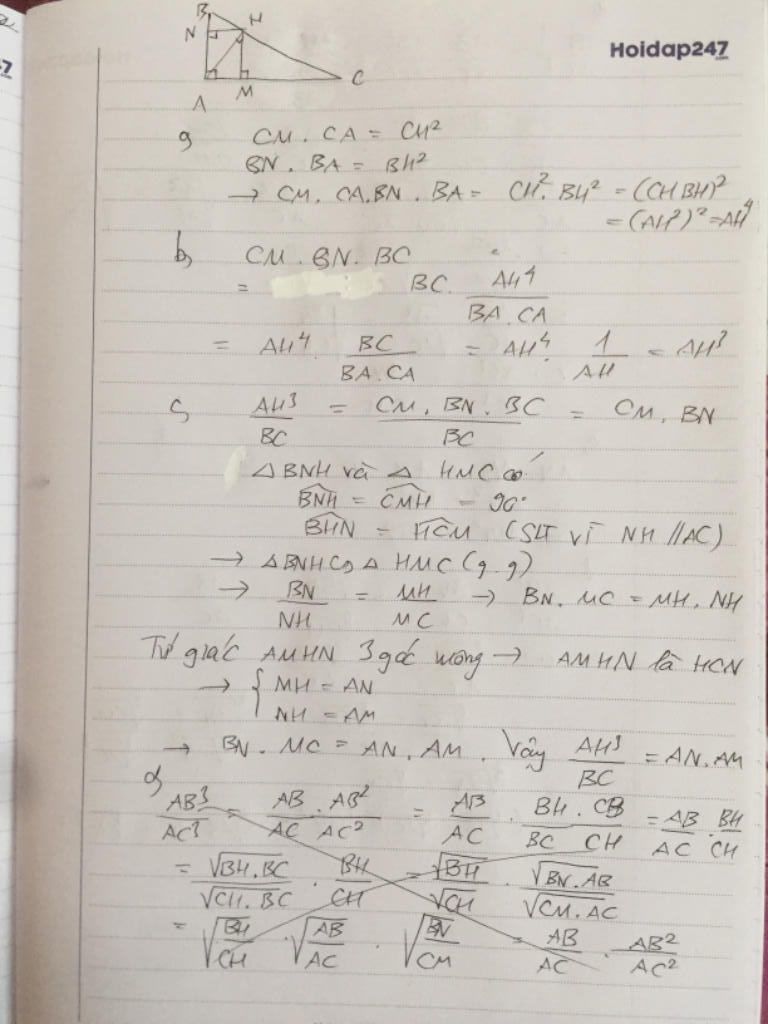 Hoidap247
.com
B
N H
A M C
a, CM . CA = CH²
BN . BA = BH²
→ CM . CA . BN . BA = CH² . BH² = (CH BH)²
= (AH²)² = AH⁴
b, CM . BN . BC
= BC . AH⁴ / BA . CA
= AH⁴ . BC / BA . CA = AH⁴ . 1 / AH = AH³
c, AH³ / BC = CM . BN . BC / BC = CM . BN
△BNH và △ HMC có
BNH = CMH = 90°
BHN = HCM (SLT vì NH // AC)
→ △BNH ∽ △ HMC (g.g)
→ BN / NH = MH / MC → BN . MC = MH . NH
Tứ giác AMHN 3 góc vuông → AMHN là HCN
→ { MH = AN
NH = AM
→ BN . MC = AN . AM . Vậy AH³ / BC = AN . AM
d, AB³ / AC³ = AB . AB² / AC AC² = AB / AC . BH . CB / BC CH = AB / AC . BH / CH
= √BH.BC / √CH.BC . BH / CH = √BH / √CH . √BN.AB / √CM.AC
= √BH/CH . √AB/AC . √BN/CM = AB / AC . AB² / AC²